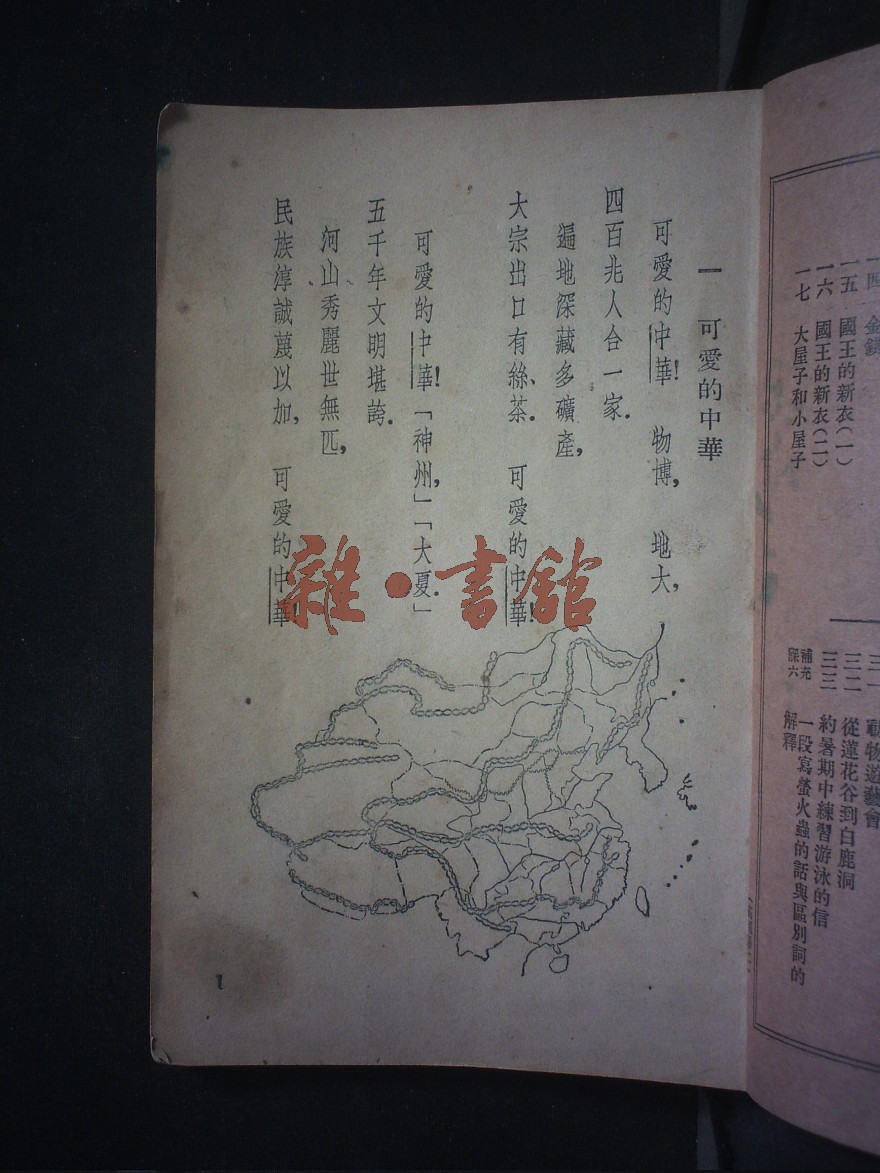 一四
一五 國王的新衣(一)
一六 國王的新衣(二)
一七 大屋子和小屋子
三一
三二 從蓮花谷到白鹿洞
三三 約暑期中練習游泳的信
補充
課六 一段寫螢火蟲的話與區別詞的
解釋
一 可愛的中華
可愛的中華! 物博, 地大,
四百兆人合一家.
遍地深藏多礦產,
大宗出口有絲、茶. 可愛的中華!
可愛的中華!「神州,」「大夏.」
五千年文明堪誇.
河山秀麗世無匹,
民族淳誠蔑以加, 可愛的中華
1
雜·書館